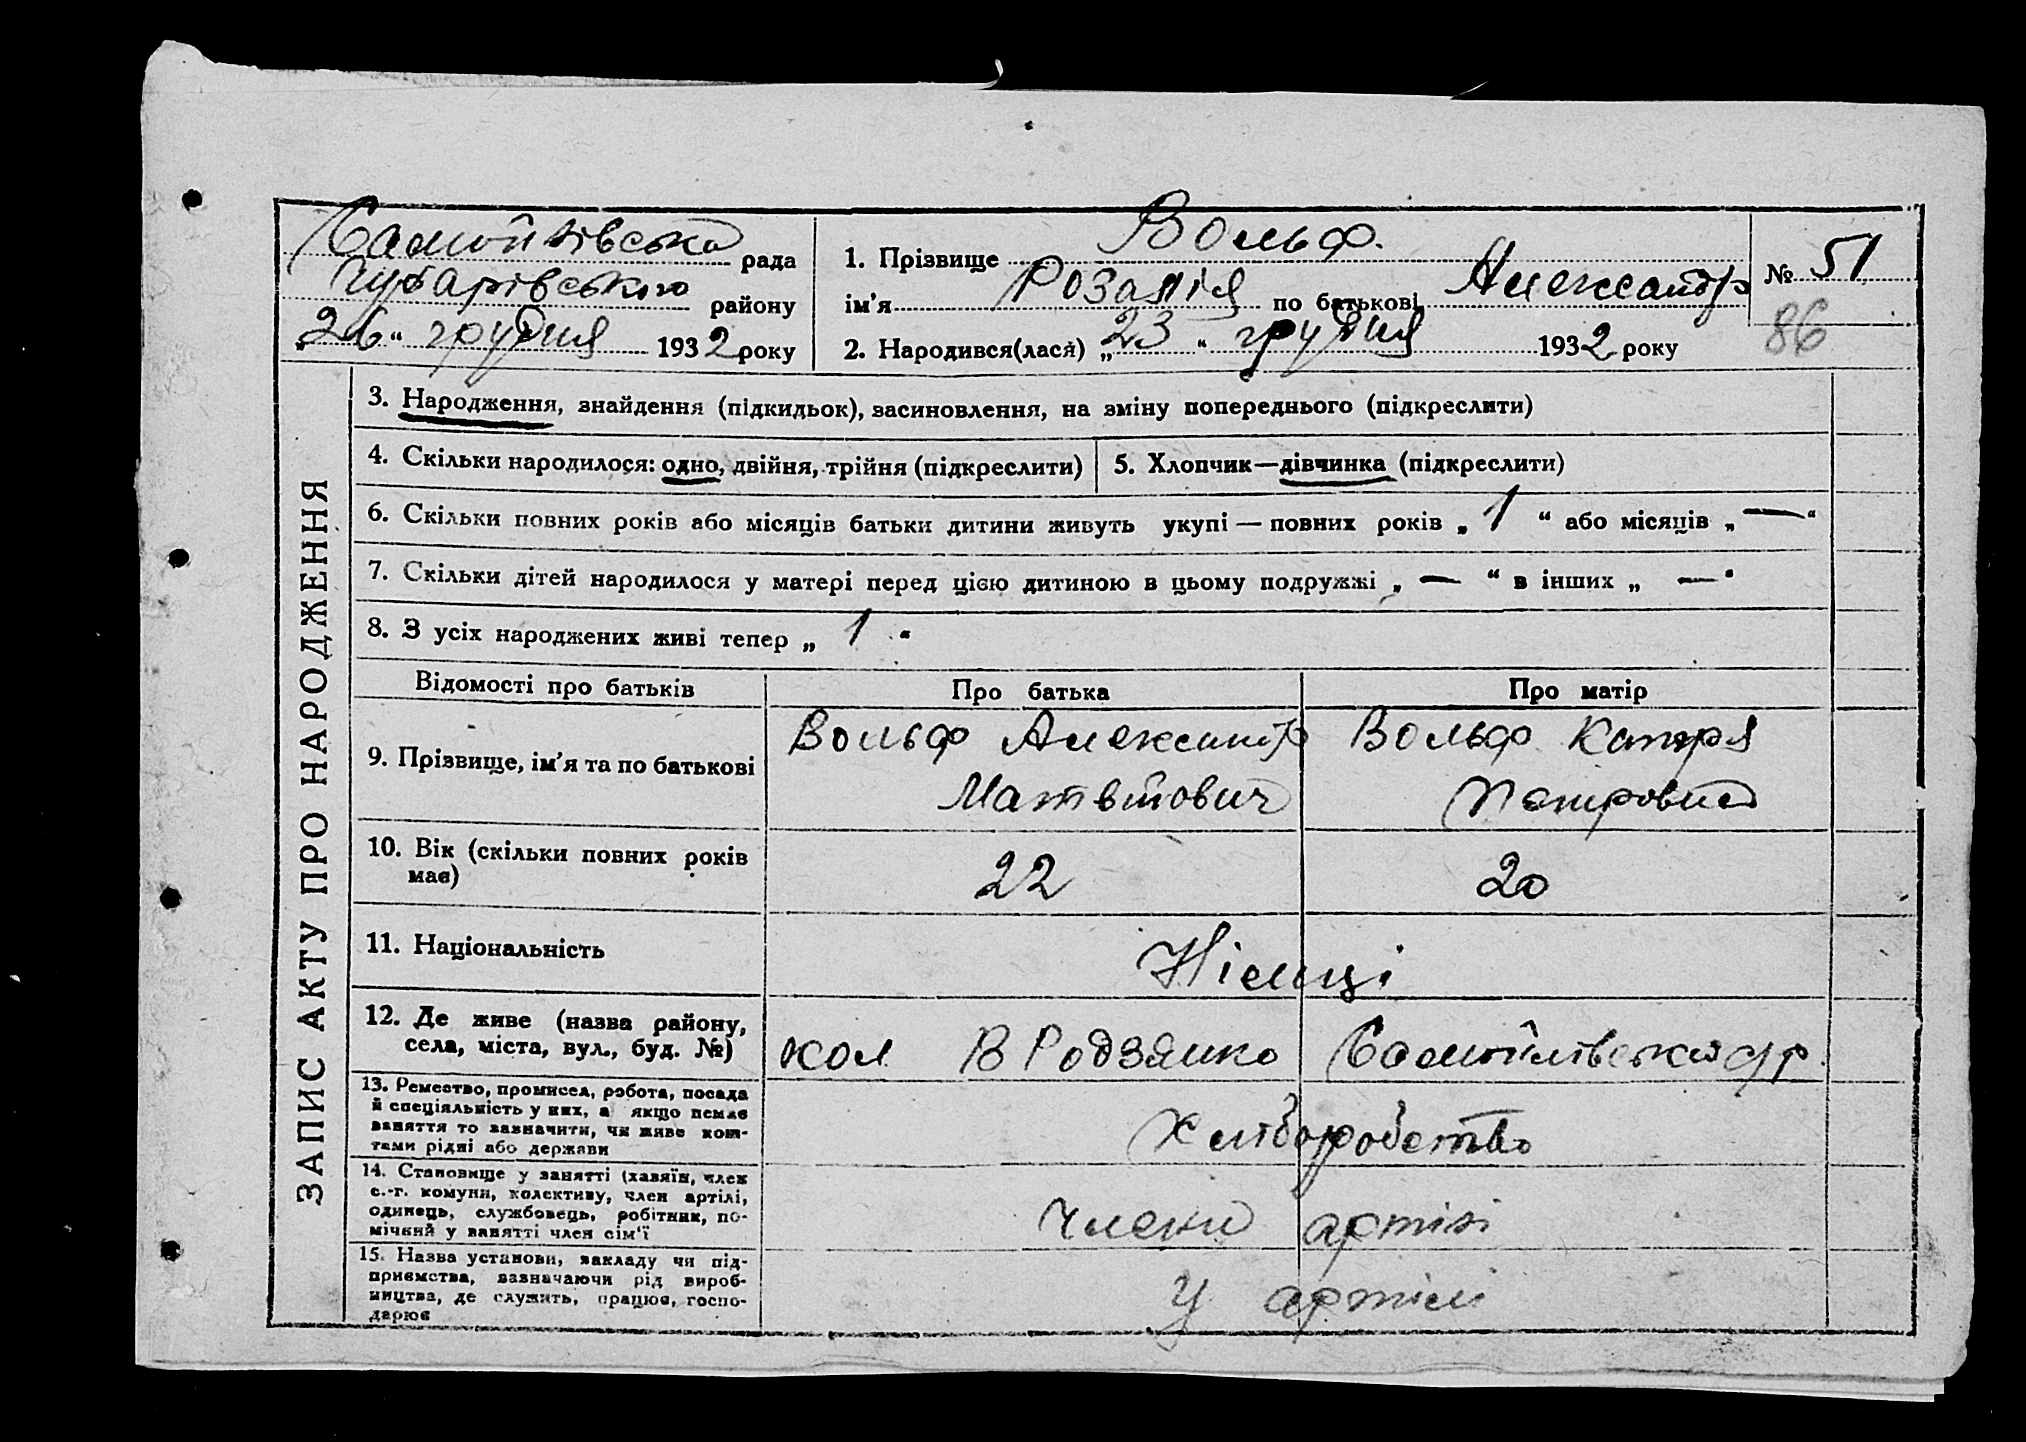 Самойлівська рада
Чубарівського району
„26“ грудня 1932 року
1. Прізвище Вольф.
ім’я Розалія по батькові Александр
2. Народився(лася) „23“ грудня 1932 року
№ 51
86
ЗАПИС АКТУ ПРО НАРОДЖЕННЯ
3. Народження, знайдення (підкидьок), засиновлення, на зміну попереднього (підкреслити)
4. Скільки народилося: одно, двійня, трійня (підкреслити)
5. Хлопчик—дівчинка (підкреслити)
6. Скільки повних років або місяців батьки дитини живуть укупі — повних років „ 1 “ або місяців „ — “
7. Скільки дітей народилося у матері перед цією дитиною в цьому подружжі „ — “ в інших „ — “
8. З усіх народжених живі тепер „ 1 “
Відомості про батьків
Про батька
Про матір
9. Прізвище, ім’я та по батькові
Вольф Александр
Матвійович
Вольф Катря
Петровна
10. Вік (скільки повних років
має)
22
20
11. Національність
Німці
12. Де живе (назва району,
села, міста, вул., буд. №)
кол В Родзянко Самойлівська с/р.
13. Ремество, промисел, робота, посада
й спеціяльність у них, а якщо немає
заняття то зазначити, чи живе кош-
тами рідні або держави
Хліборобство
14. Становище у занятті (хазяїн, член
с.-г. комуни, колективу, член артілі,
одинець, службовець, робітник, по-
мічний у занятті член сім’ї
Члени артілі
15. Назва установи, закладу чи під-
приємства, зазначаючи рід вироб-
ництва, де служить, працює, госпо-
дарює
У артілі